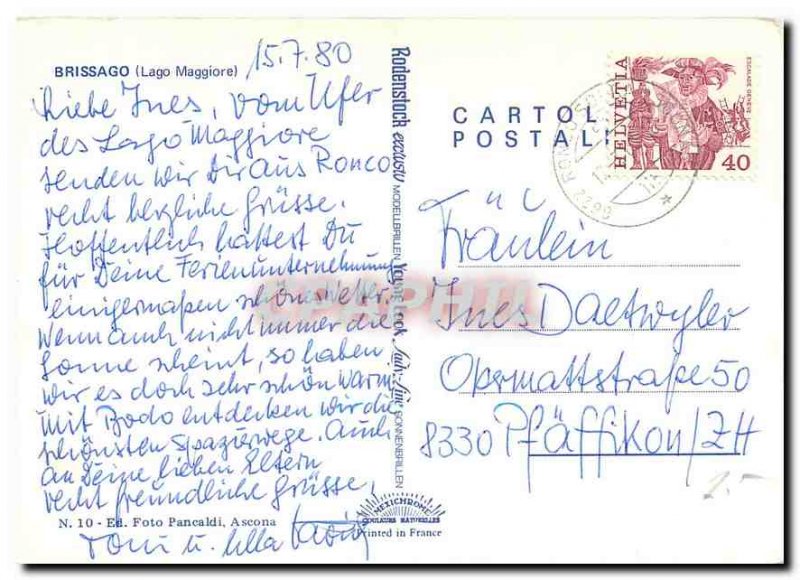 BRISSAGO (Lago Maggiore)
15.7.80
Liebe Ines, vom Ufer
des Lago Maggiore
senden wir Dir aus Ronco
recht herzliche Grüsse.
Hoffentlich hattest Du
für Deine Ferienunternehmung
einigermaßen schönes Wetter.
Wenn auch nicht immer die
Sonne scheint, so haben
wir es doch sehr schön warm.
Mit Bodo entdecken wir die
schönsten Spazierwege. Auch
an Deine lieben Eltern
recht freundliche Grüsse,
N. 10 - Ed. Foto Pancaldi, Ascona
Toni u. Ella
Rodenstock exclusiv MODELLBRILLEN YOUNG LOOK SONNENBRILLEN
MEXICHROME
COULEURS NATURELLES
Printed in France
CARTOL
POSTALI
HELVETIA
ESCALADE GENEVE
40
6622 RONCO
CPAPHIL
Fräulein
Ines Daetwyler
Obermattstraße 50
8330 Pfäffikon/ZH